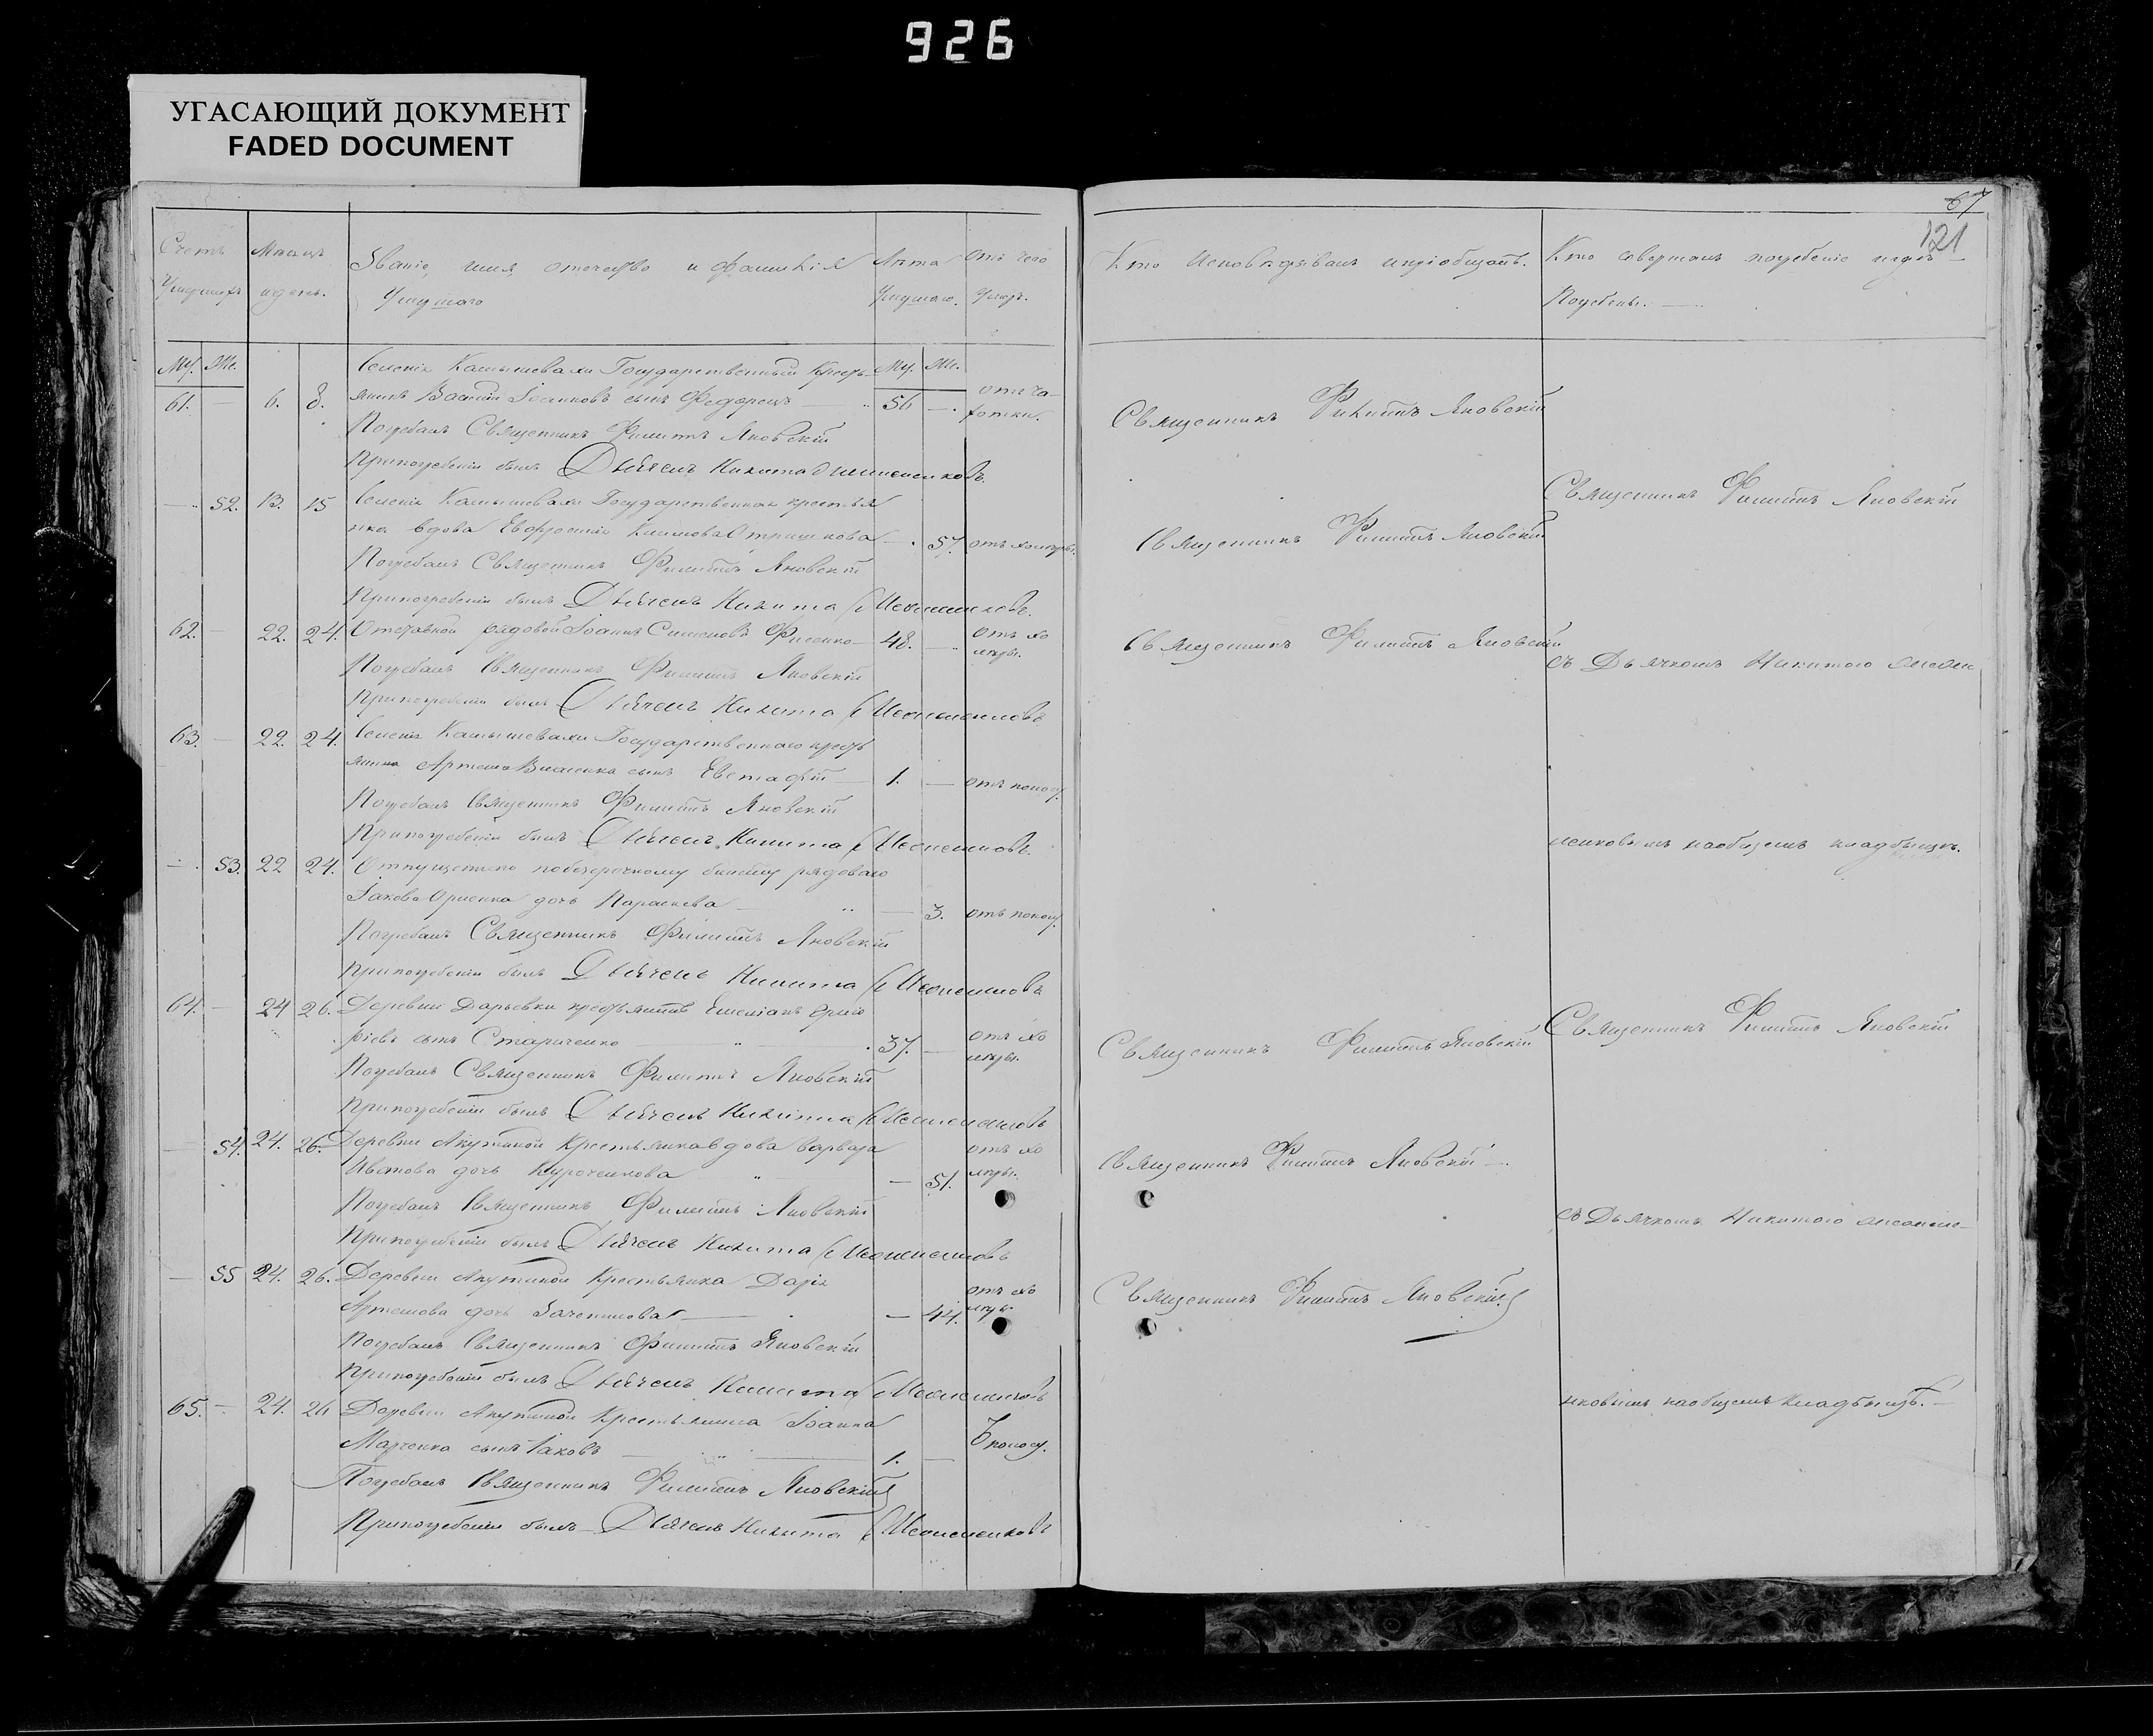 926
УГАСАЮЩИЙ ДОКУМЕНТ
FADED DOCUMENT
67
121
Счетъ Умершихъ
Мѣсяцъ и день.
Званіе, имя, отечество и фамилія Умершаго
Лѣта Умершаго.
Отъ чего Умеръ.
Кто Исповѣдывалъ и пріобщалъ.
Кто совершалъ погребеніе и гдѣ Погребены.
Му. Же.
Му. Же.
Селенія Камышевахи Государственный Кресть-
61. — 6. 8. янинъ Василій Іоанновъ сынъ Федорецъ — 56 —. отъ ча-
хотки.
Погребалъ Священникъ Филиппъ Яновскій
Священникъ Филиппъ Яновскій
Припогребеніи былъ Дьячекъ Никита
— 52. 13. 15 Селенія Камышевахи Государственная крестья
нка вдова Евфросинія Климова — 57. отъ холеры.
Погребалъ Священникъ Филиппъ Яновскій
Священникъ Филиппъ Яновскій
Священникъ Филиппъ Яновскій
Припогребеніи былъ Дьячекъ Никита
62. — 22. 24. Отставной рядовой Іоаннъ Симеоновъ Фисенко — 48. — отъ хо
леры.
Погребалъ Священникъ Филиппъ Яновскій
Священникъ Филиппъ Яновскій
съ Дьячкомъ Никитою
Припогребеніи былъ Дьячекъ Никита
63. — 22. 24. Селенія Камышевахи Государственнаго кресть
янина Артема Власенка сынъ Евстафій — 1. — отъ поносу.
Погребалъ Священникъ Филиппъ Яновскій
Припогребеніи былъ Дьячекъ Никита
наобщемъ кладбищѣ.
— 53. 22 24. Отпущеннаго побезсрочному билету рядоваго
Іакова дочь Параскева — 3. отъ поносу.
Погребалъ Священникъ Филиппъ Яновскій
Припогребеніи былъ Дьячекъ Никита
64. — 24 26. Деревни Дарьевки крестьянинъ Емеліанъ Григо
ріевъ сынъ Стариченко — 37. — отъ хо
леры.
Погребалъ Священникъ Филиппъ Яновскій
Священникъ Филиппъ Яновскій
Священникъ Филиппъ Яновскій
Припогребеніи былъ Дьячекъ Никита
— 54. 24. 26. Деревни Акутиной Крестьянка вдова Варвара
Иванова дочь Курочкинова — 51. отъ хо
леры.
Погребалъ Священникъ Филиппъ Яновскій
Священникъ Филиппъ Яновскій —
съ Дьячкомъ Никитою
Припогребеніи былъ Дьячекъ Никита
— 55 24. 26. Деревни Акутиной Крестьянка Дарія
Артемова дочь — 44. отъ хо
леры.
Погребалъ Священникъ Филиппъ Яновскій
Священникъ Филиппъ Яновскій
Припогребеніи былъ Дьячекъ Никита
наобщемъ Кладбищѣ. —
65. — 24. 26 Деревни Акутиной Крестьянина Іоанна
Марченка сынъ Іаковъ — 1. — поносу.
Погребалъ Священникъ Филиппъ Яновскій
Припогребеніи былъ Дьячекъ Никита